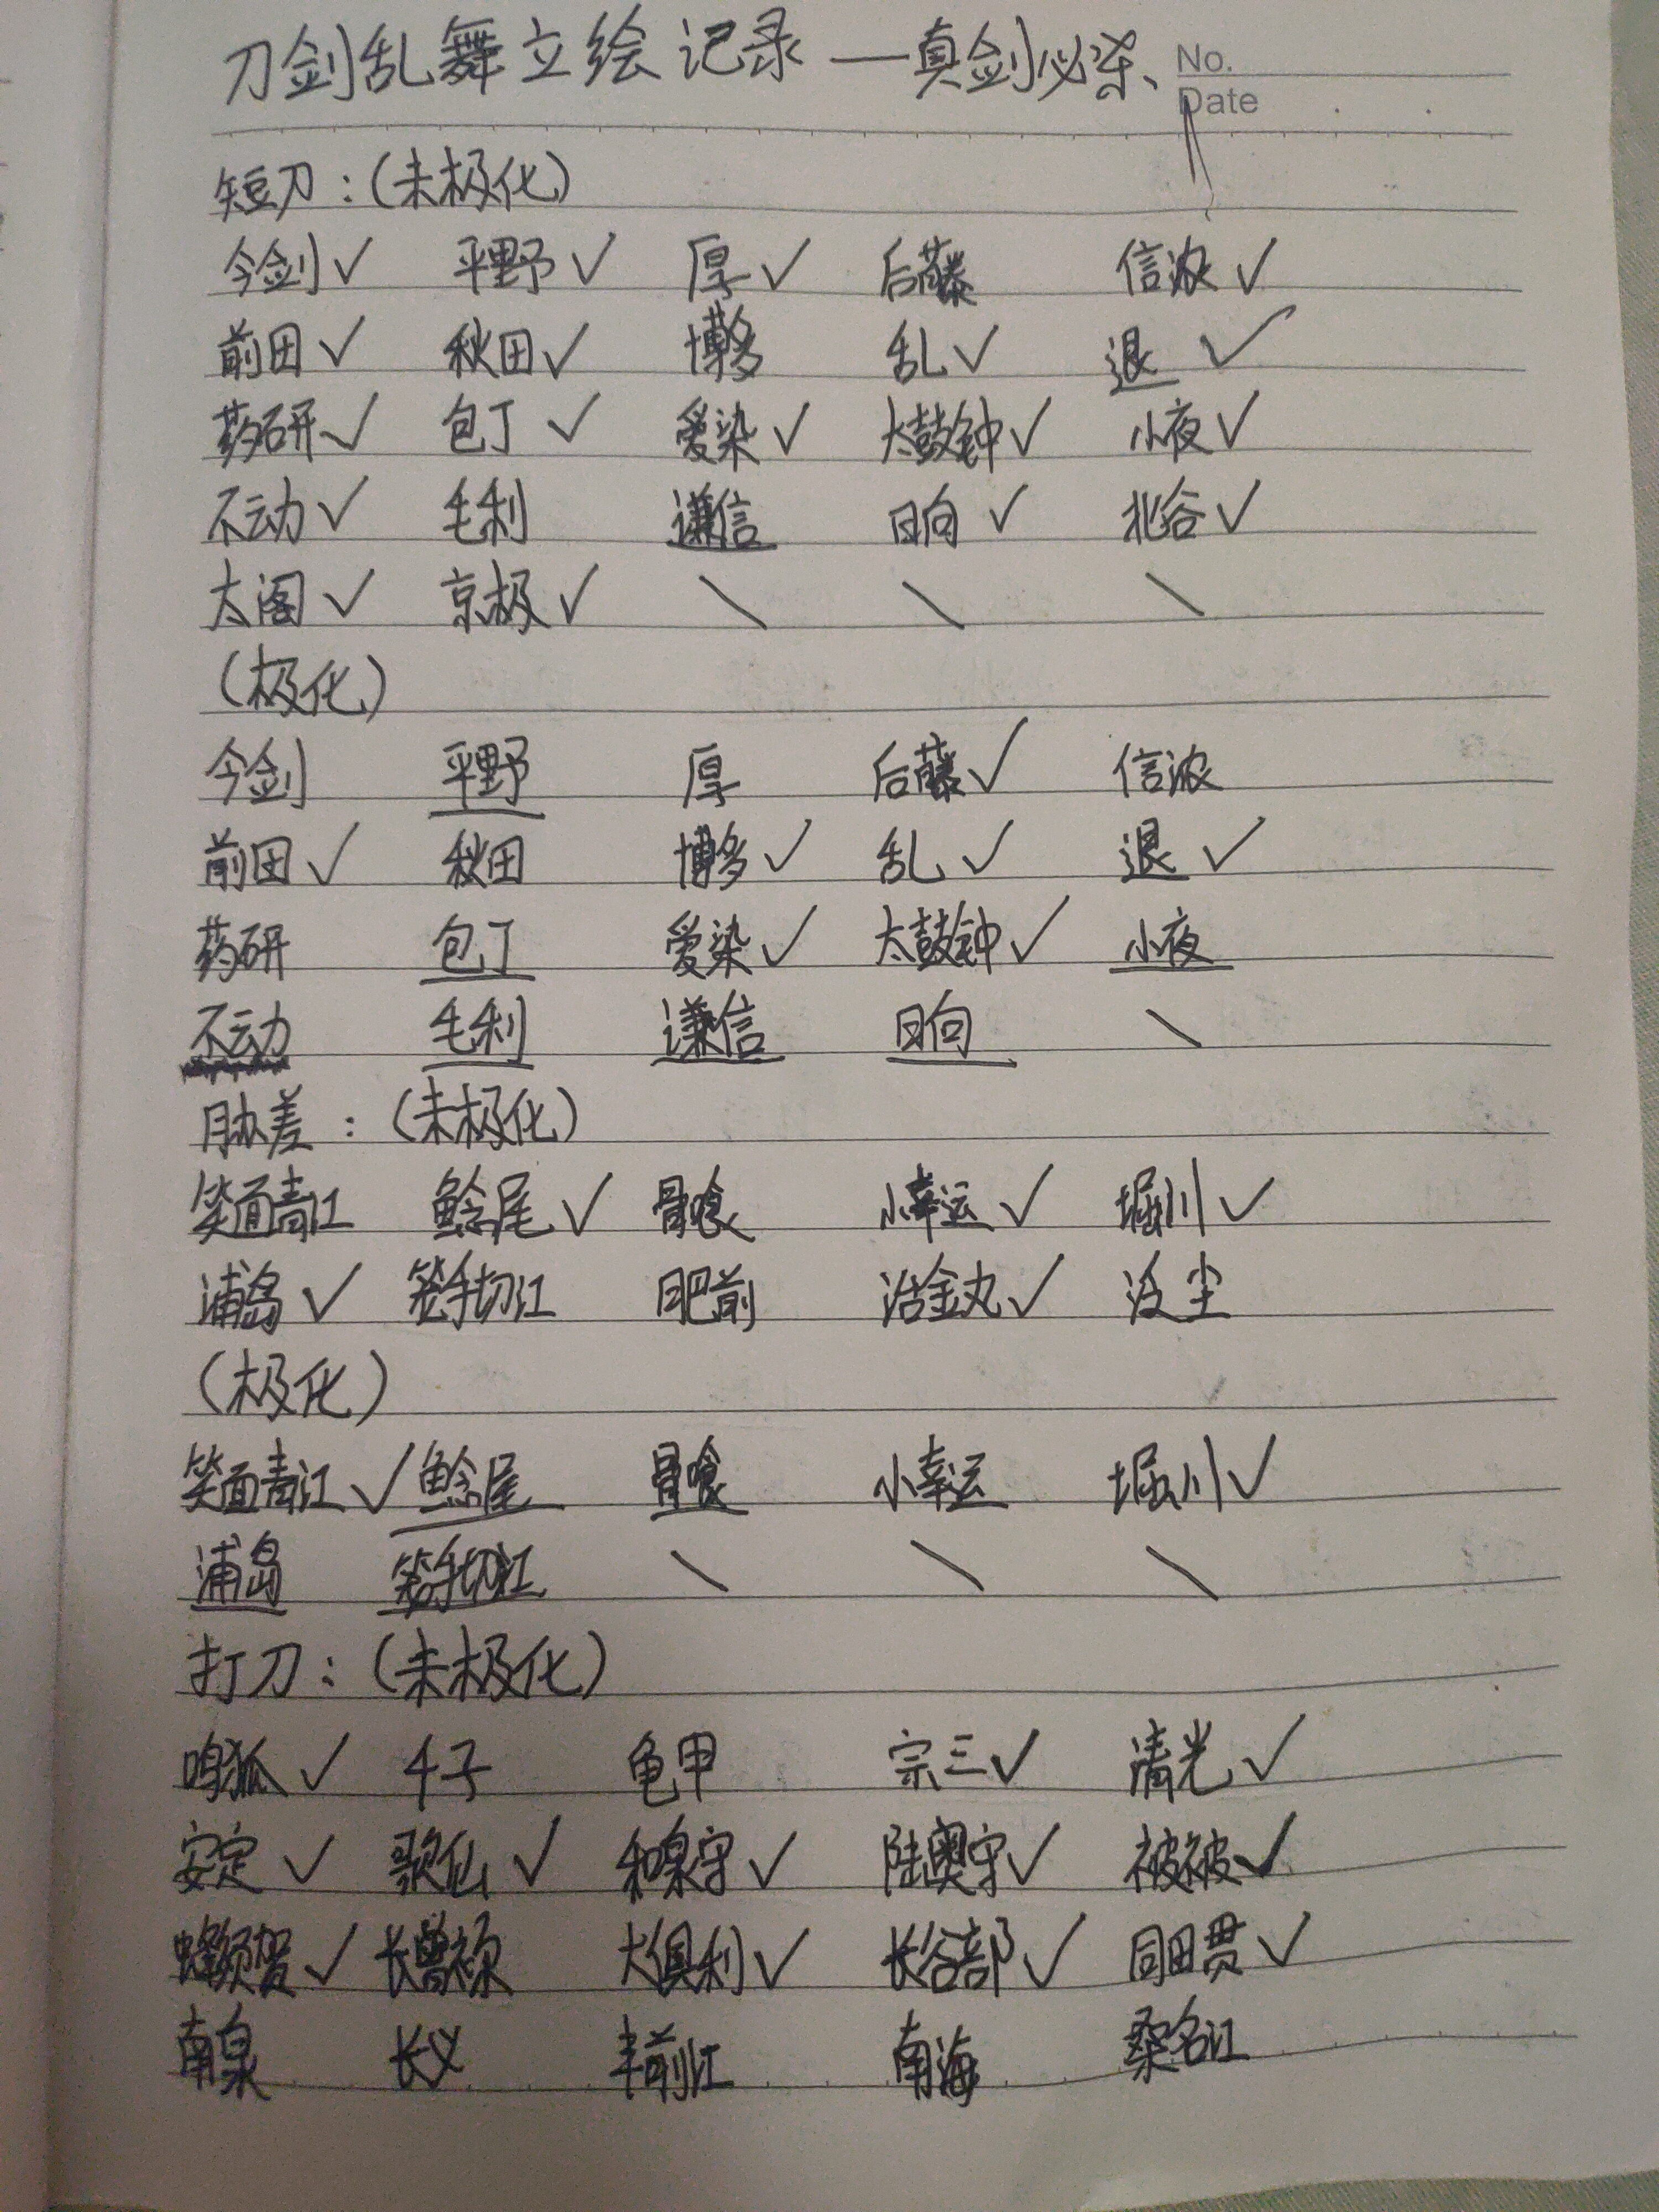 刀剑乱舞立绘记录—真剑必杀
No.
Date
短刀：(未极化)
今剑✓ 平野✓ 厚✓ 后藤 信浓✓
前田✓ 秋田✓ 博多 乱✓ 退✓
药研✓ 包丁✓ 爱染✓ 太鼓钟✓ 小夜✓
不动✓ 毛利 谦信 日向✓ 北谷✓
太阁✓ 京极✓ \ \ \
(极化)
今剑 平野 厚 后藤✓ 信浓
前田✓ 秋田 博多✓ 乱✓ 退✓
药研 包丁 爱染✓ 太鼓钟✓ 小夜
不动 毛利 谦信 日向 \
胁差：(未极化)
笑面青江 鲶尾✓ 骨喰 小幸运✓ 堀川✓
浦岛✓ 笼手切江 肥前 治金丸✓ 没尘
(极化)
笑面青江✓ 鲶尾 骨喰 小幸运 堀川✓
浦岛 笼手切江 \ \ \
打刀：(未极化)
鸣狐✓ 千子 龟甲 宗三✓ 清光✓
安定✓ 歌仙✓ 和泉守✓ 陆奥守✓ 被被✓
蜂须贺✓ 长曾祢 大俱利✓ 长谷部✓ 同田贯✓
南泉 长义 丰前江 南海 桑名江